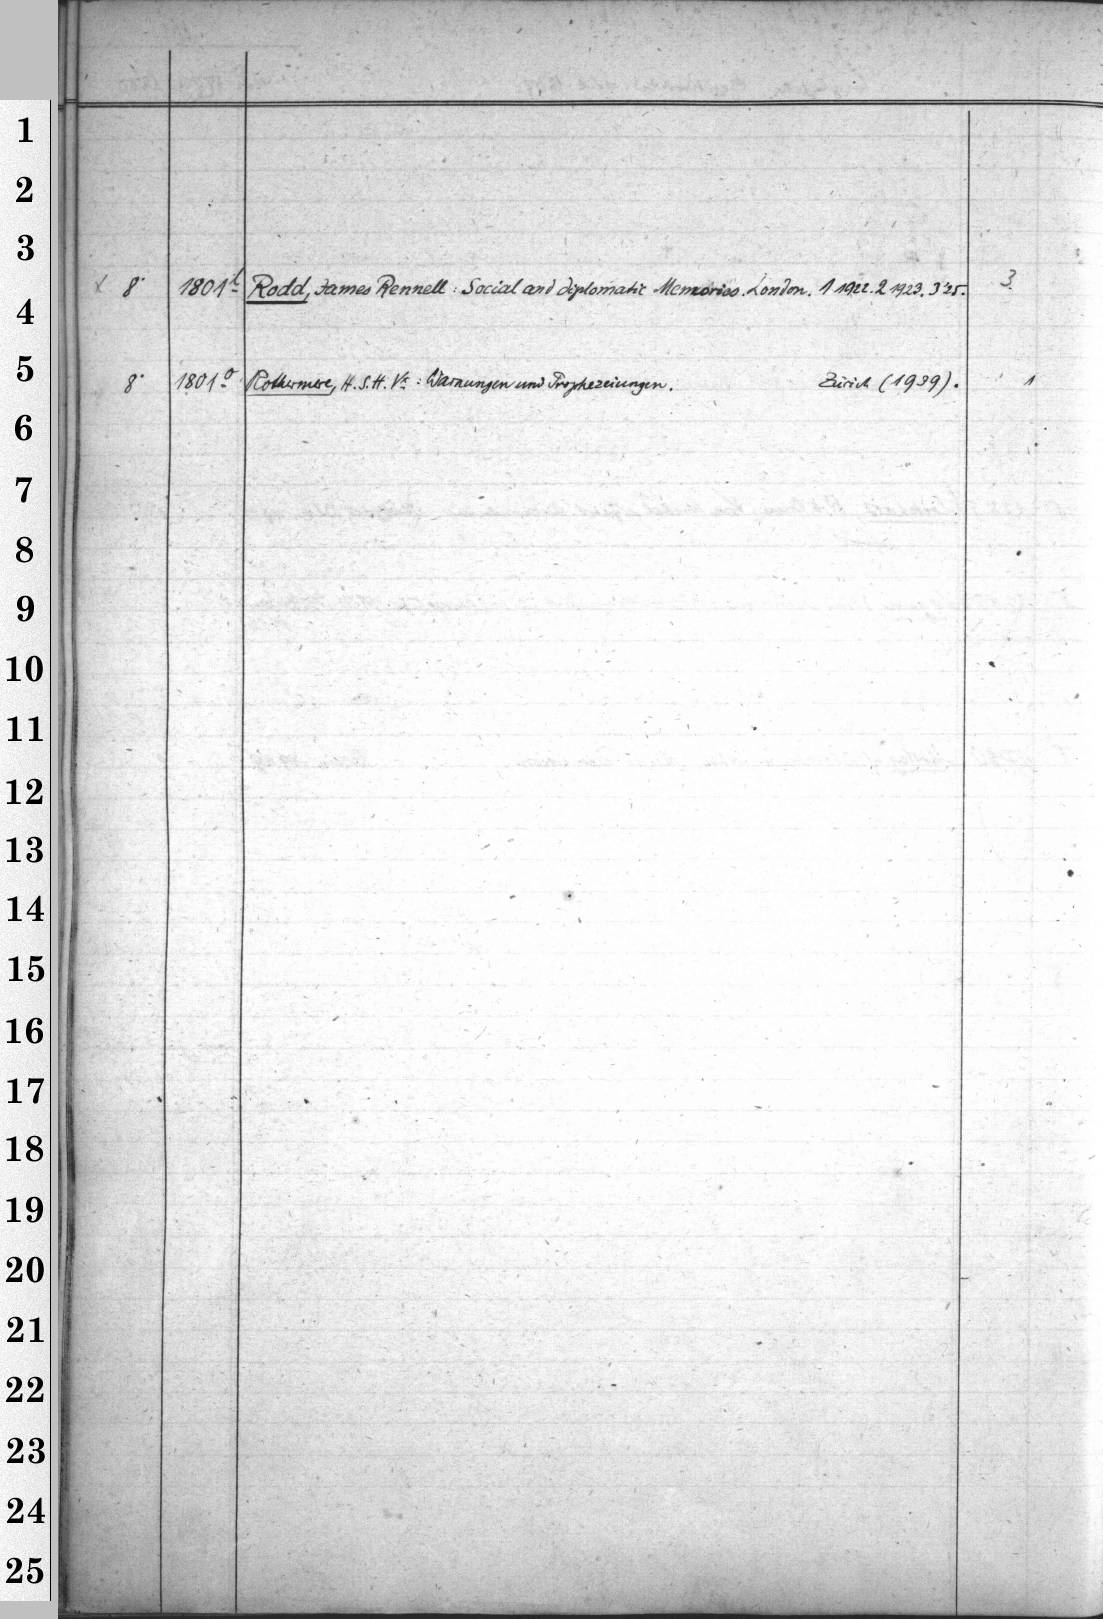 1
2
3
x 8° 1801 l Rodd, James Rennell: Social and diplomatic Memories. London. 1 1922. 2 1923. 3 '25. 3
4
5
8° 1801 o Rothermere, H. S. H. Vt: Warnungen und Prophezeiungen. Zürich (1939). 1
6
7
8
9
10
11
12
13
14
15
16
17
18
19
20
21
22
23
24
25